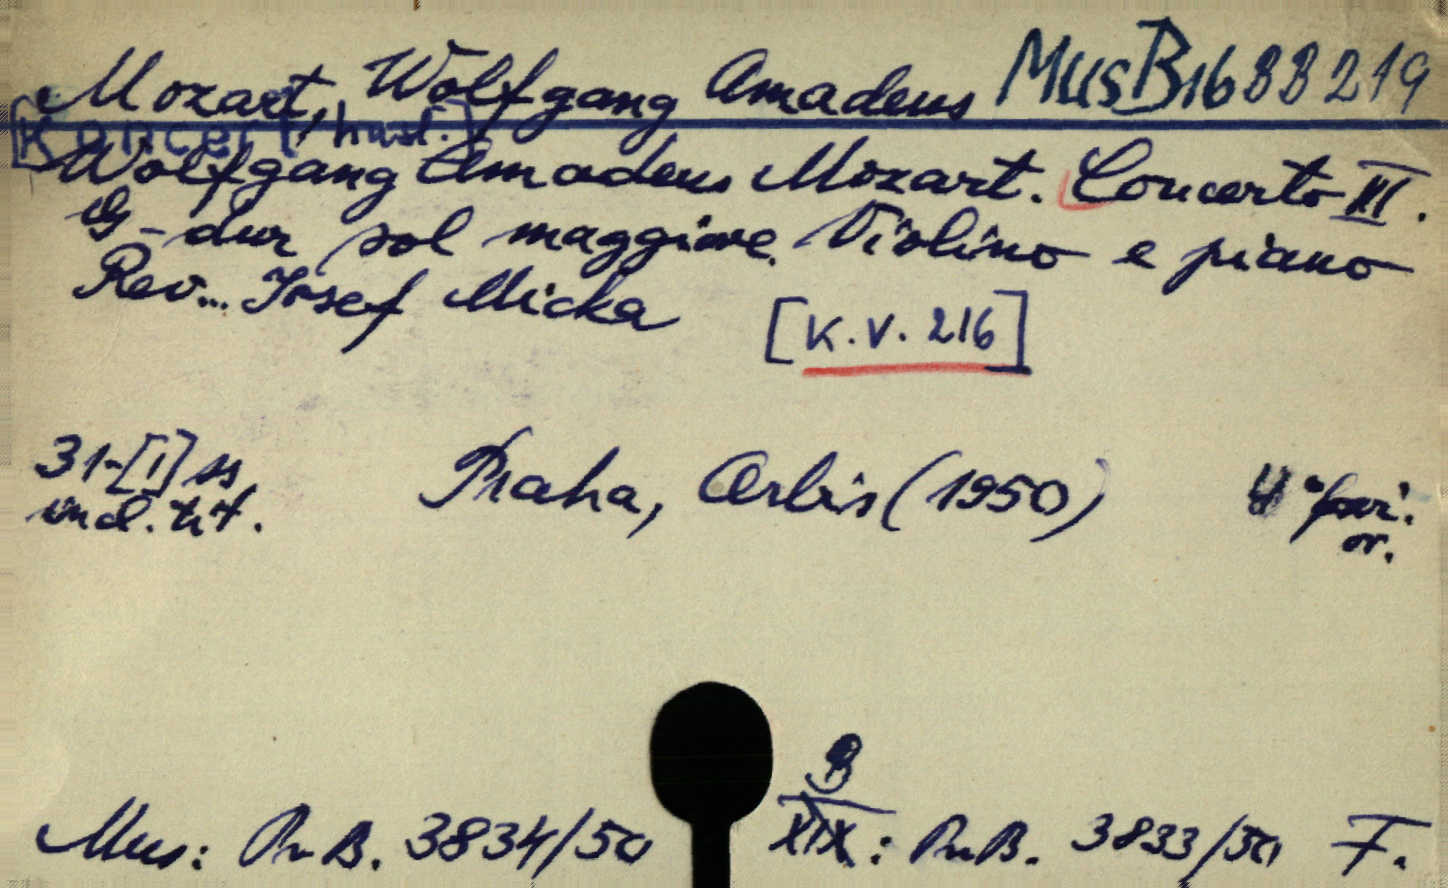 Mozart, Wolfgang Amadeus MusB1688219
[Koncert, hud.]
Wolfgang Amadeus Mozart. Concerto III.
G-dur sol maggiore. Violino e piano
Rev... Josef Micka [K.V. 216]
31-[1] ss, Praha, Orbis (1950) 4°
incl. tit. or.
B
Mus: Pr. B. 3834/50 XIX: Pr. B. 3833/50 F.